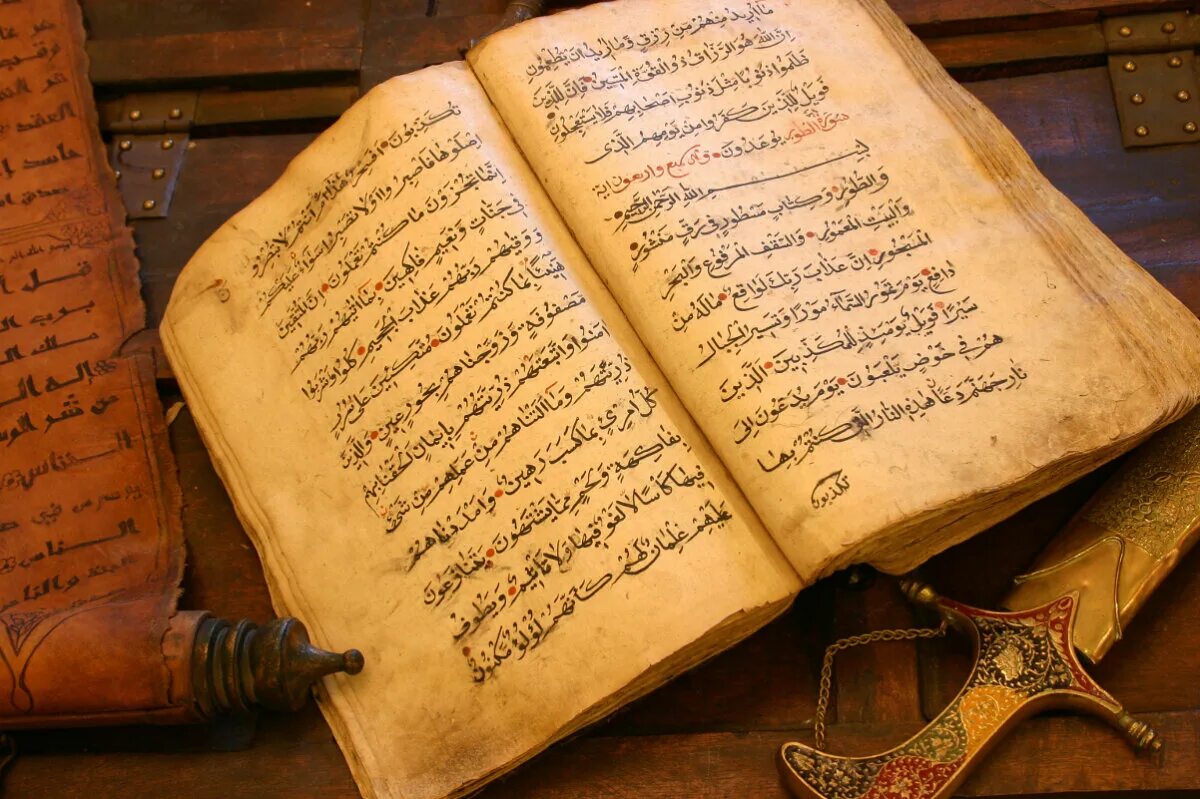 ما اريد منهم من رزق وما اريد ان يطعمون
ان الله هو الرزاق ذو القوة المتين فان للذين
ظلموا ذنوبا مثل ذنوب اصحابهم فلا يستعجلون
فويل للذين كفروا من يومهم الذي
سورة الطور يوعدون وهي سبع واربعون اية
بسم الله الرحمن الرحيم
والطور وكتاب مسطور في رق منشور
والبيت المعمور والسقف المرفوع والبحر
المسجور ان عذاب ربك لواقع ما له من
دافع يوم تمور السماء مورا وتسير الجبال
سيرا فويل يومئذ للمكذبين الذين
هم في خوض يلعبون يوم يدعون الى
نار جهنم دعا هذه النار التي كنتم بها
تكذبون
تكذبون افسحر هذا ام انتم لا تبصرون
اصلوها فاصبروا او لا تصبروا سواء عليكم
انما تجزون ما كنتم تعملون ان المتقين
في جنات ونعيم فاكهين بما اتيهم ربهم
ووقيهم ربهم عذاب الجحيم كلوا واشربوا
هنيئا بما كنتم تعملون متكئين على سرر
مصفوفة وزوجناهم بحور عين والذين
امنوا واتبعتهم ذريتهم بايمان الحقنا بهم
ذريتهم وما التناهم من عملهم من شيء
كل امرئ بما كسب رهين وامددناهم
بفاكهة ولحم مما يشتهون يتنازعون
فيها كأسا لا لغو فيها ولا تأثيم ويطوف
عليهم غلمان لهم كأنهم لؤلؤ مكنون
العقد
حاسد
قل
برب
ملك
اله
من شر
الخناس
في
الناس